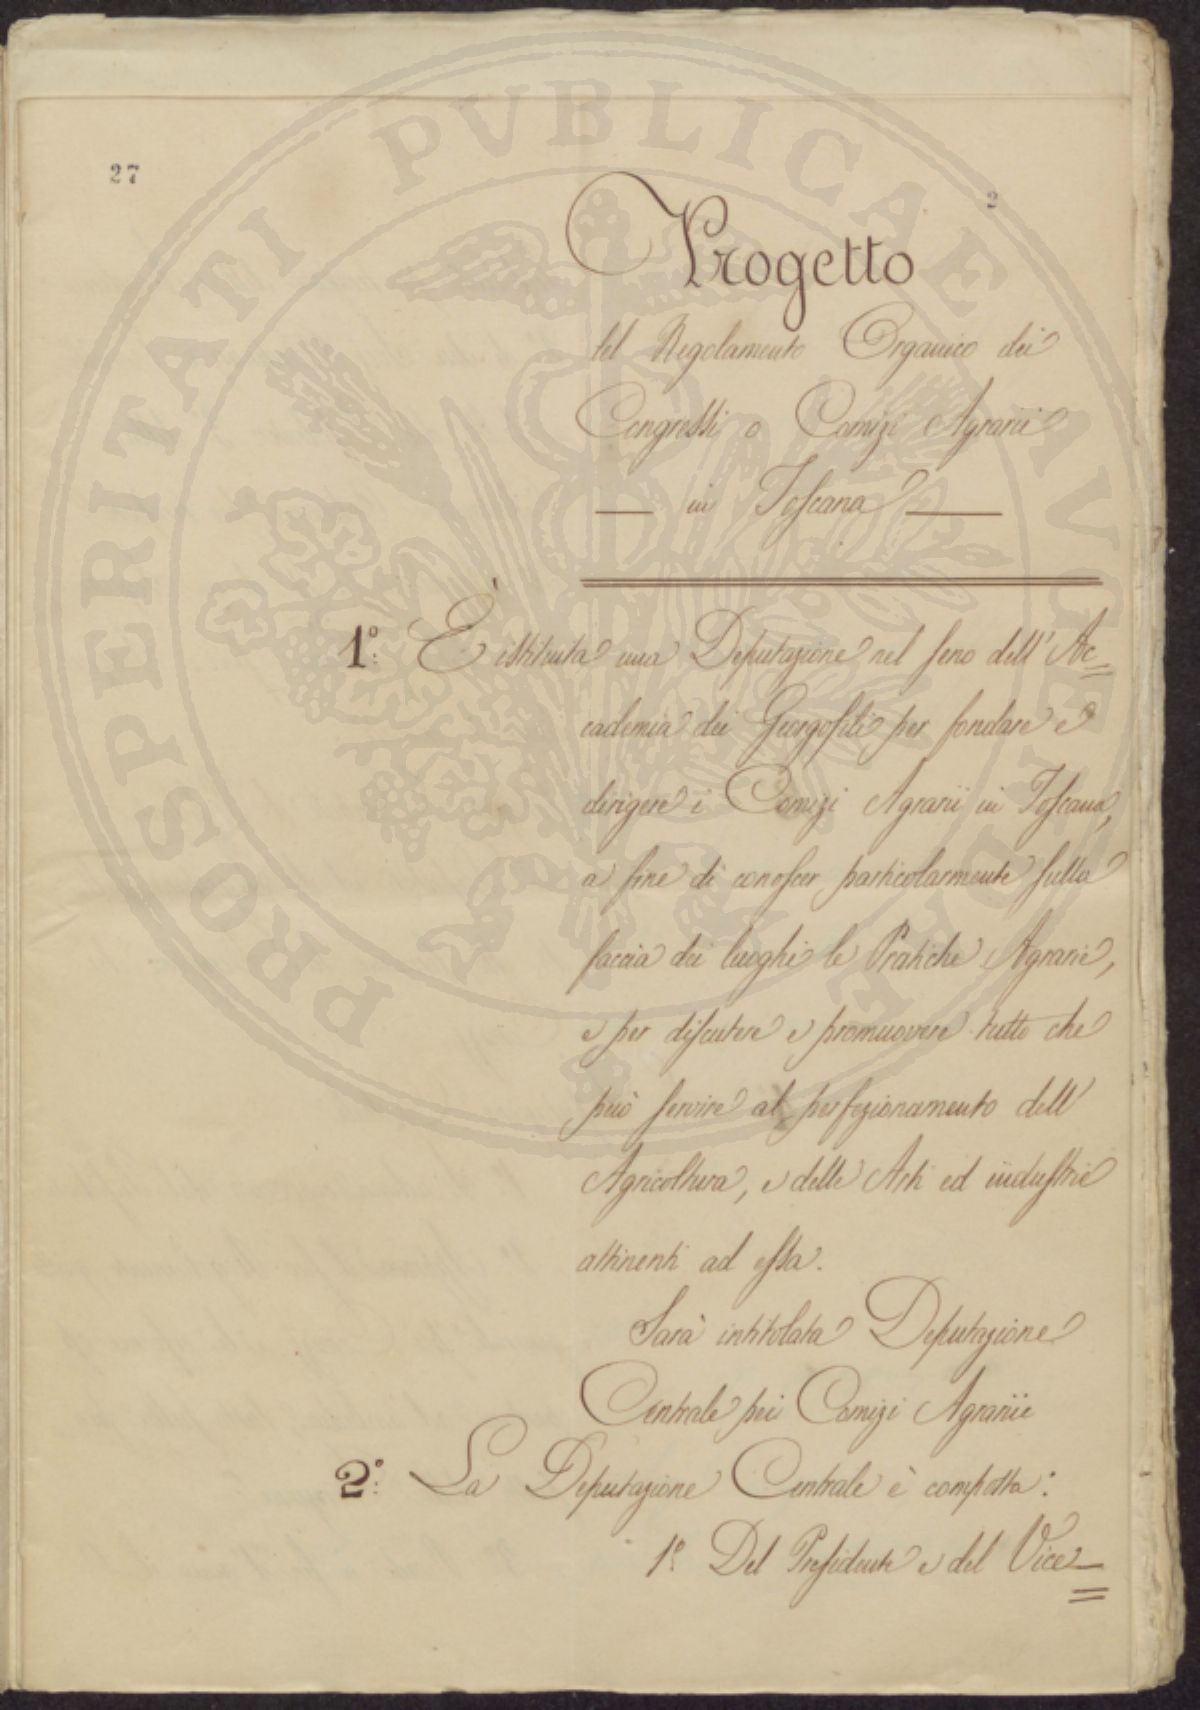 PROSPERITATI PVBLICAE AVGENDAE
27
2
Progetto
del Regolamento Organico dei
Congressi o Comizi Agrarii
in Toscana
1.º È istituita una Deputazione nel seno dell' Ac=
cademia dei Georgofili per fondare e
dirigere i Comizi Agrarii in Toscana,
a fine di conoscer particolarmente sulla
faccia dei luoghi le Pratiche Agrarie,
e per discutere e promuovere tutto che
può servire al perfezionamento dell'
Agricoltura, e delle Arti ed industrie
attinenti ad essa.
Sarà intitolata Deputazione
Centrale pei Comizi Agrarii
2.º La Deputazione Centrale è composta:
1.º Del Presidente e del Vice=